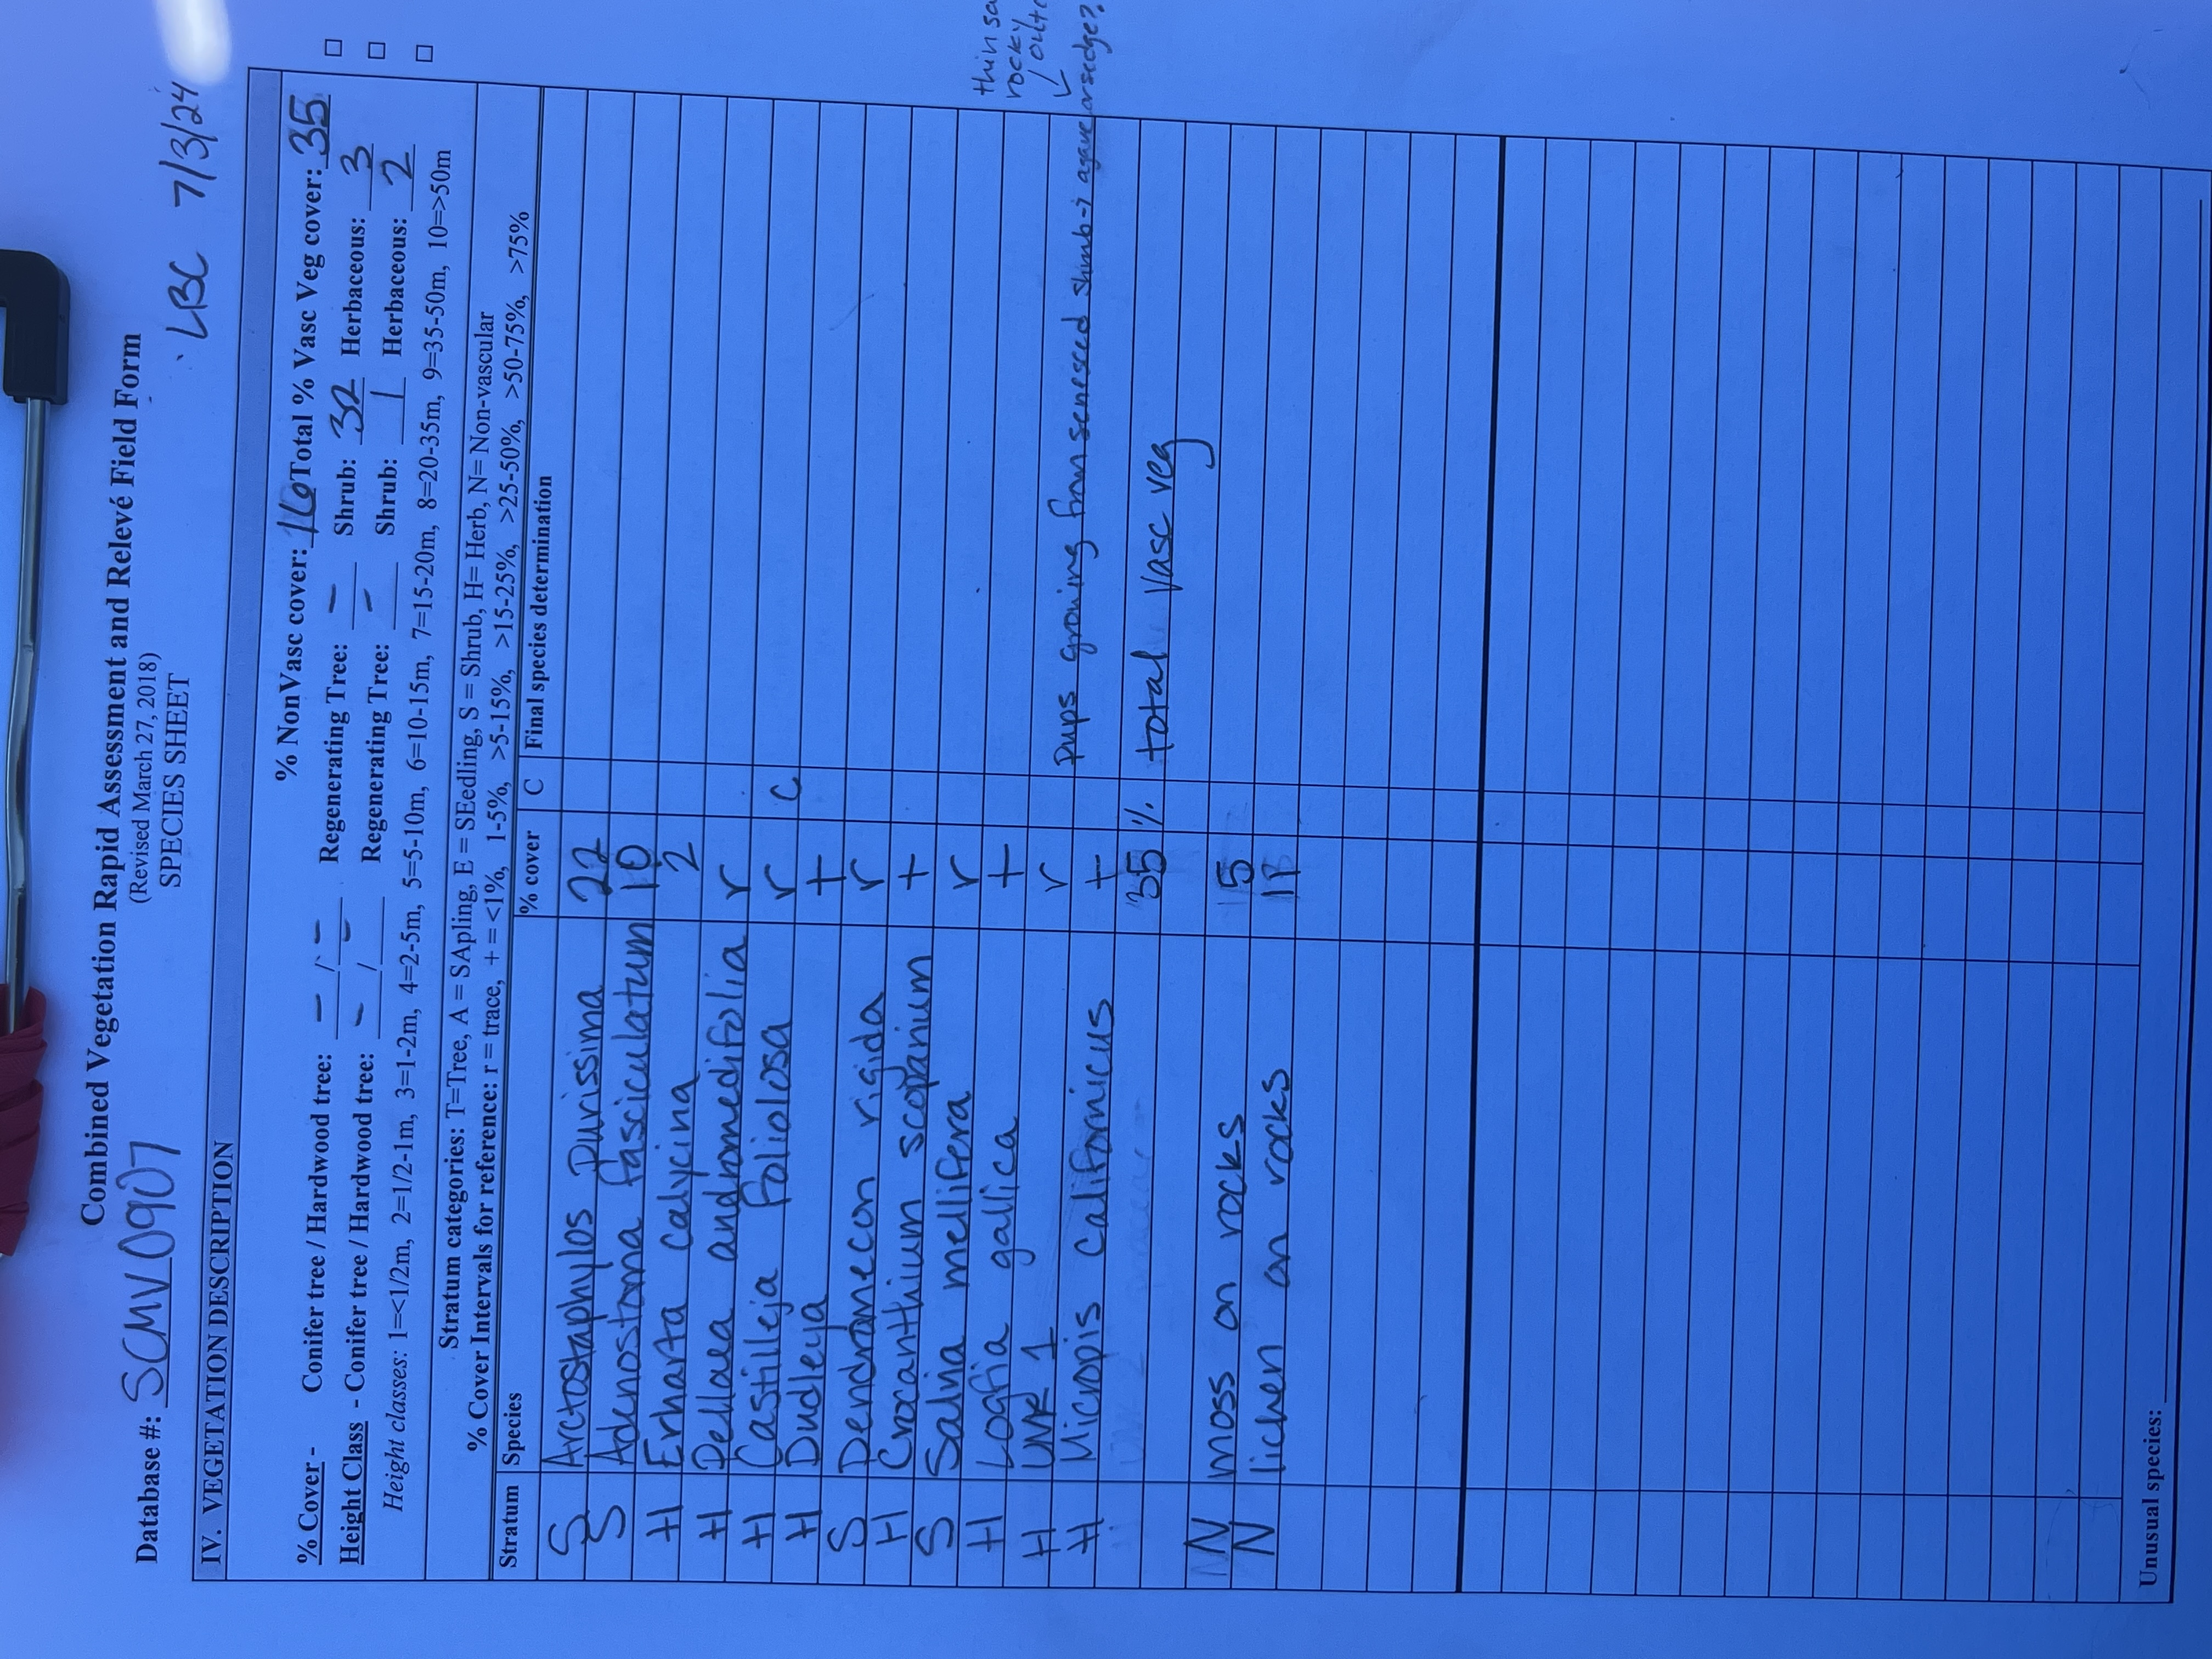 Combined Vegetation Rapid Assessment and Relevé Field Form
(Revised March 27, 2018)
Database #: SCMV0907 SPECIES SHEET LBC 7/3/24
IV. VEGETATION DESCRIPTION
% NonVasc cover: 16 Total % Vasc Veg cover: 35
% Cover - Conifer tree / Hardwood tree: - / - Regenerating Tree: - Shrub: 32 Herbaceous: 3
Height Class - Conifer tree / Hardwood tree: - / - Regenerating Tree: - Shrub: 1 Herbaceous: 2
Height classes: 1=<1/2m, 2=1/2-1m, 3=1-2m, 4=2-5m, 5=5-10m, 6=10-15m, 7=15-20m, 8=20-35m, 9=35-50m, 10=>50m
Stratum categories: T=Tree, A = SApling, E = SEedling, S = Shrub, H= Herb, N= Non-vascular
% Cover Intervals for reference: r = trace, + = <1%, 1-5%, >5-15%, >15-25%, >25-50%, >50-75%, >75%
Stratum Species % cover C Final species determination
S Arctostaphylos purissima 22
S Adenostoma fasciculatum 10
H Erharta calycina 2
H Pellaea andromedifolia r
H Castilleja foliolosa r C
H Dudleya +
S Dendromecon rigida r
H Crocanthium scoparium +
S Salvia mellifera r
H Logfia gallica + thin sa
rocky
H UNK 1 r pups growing from senesced shrub-> agave or sedge?
H Micropis californicus +
35 % total vasc veg
N moss on rocks 5
N lichen on rocks
Unusual species: